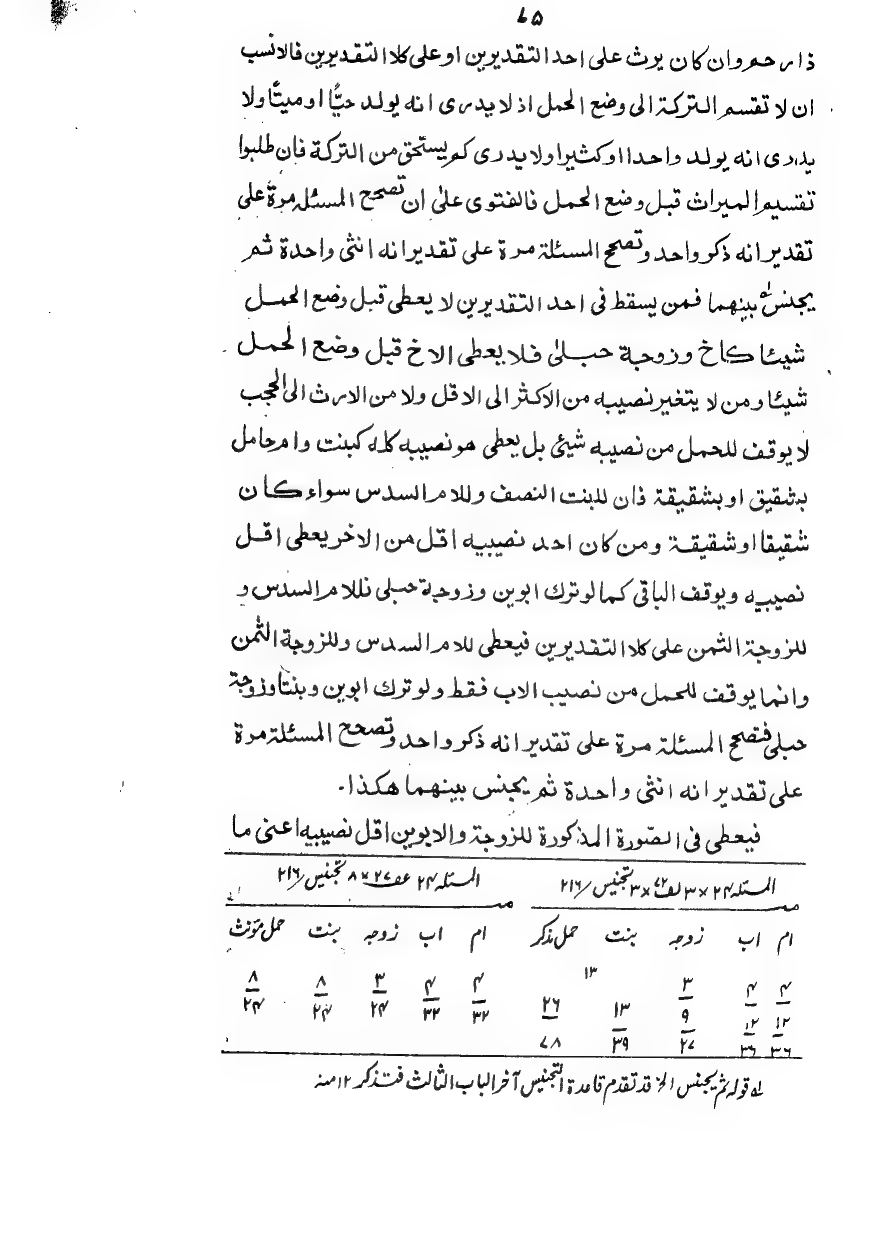 ۷۵
ذا رحم وان كان يرث على احد التقديرين او على كلا التقديرين فالانسب
ان لا تقسم التركة الى وضع الحمل اذ لا يدرى انه يولد حيًّا او ميتًا ولا
يدرى انه يولد واحدا او كثيرا ولا يدرى كم يستحق من التركة فان طلبوا
تقسيم الميراث قبل وضع الحمل فالفتوى على ان تصحح المسئلة مرة على
تقدير انه ذكر واحد وتصحح المسئلة مرة على تقدير انه انثى واحدة ثم
يجنس له بينهما فمن يسقط فى احد التقديرين لا يعطى قبل وضع الحمل
شيئا كاخ وزوجة حبلىٰ فلا يعطى الاخ قبل وضع الحمل
شيئا ومن لا يتغير نصيبه من الاكثر الى الاقل ولا من الارث الى الحجب
لا يوقف للحمل من نصيبه شيئ بل يعطى هو نصيبه كله كبنت وام حامل
بشقيق او بشقيقة فان للبنت النصف وللام السدس سواء كان
شقيقا او شقيقة ومن كان احد نصيبيه اقل من الاخر يعطى اقل
نصيبيه ويوقف الباقى كما لو ترك ابوين وزوجة حبلى فللام السدس و
للزوجة الثمن على كلا التقديرين فيعطى للام السدس وللزوجة الثمن
وانما يوقف للحمل من نصيب الاب فقط ولو ترك ابوين وبنتا وزوجة
حبلى فتصحح المسئلة مرة على تقدير انه ذكر واحد وتصحح المسئلة مرة
على تقدير انه انثى واحدة ثم يجنس بينهما هكذا.
فيعطى فى الصورة المذكورة للزوجة والابوين اقل نصيبيه اعنى ما
المسئلہ ۲۴ × ۳ لف ۷۲ × ۳ تجنیس/۲۱۶
ام اب زوجہ بنت حمل مذکر
۱۳
۴ ۴ ۳
۱۲ ۱۲ ۹ ۱۳ ۲۶
۳۶ ۳۶ ۲۷ ۳۹ ۷۸
المسئلہ ۲۴ عف ۲۷ × ۸ تجنیس/۲۱۶
ام اب زوجہ بنت حمل مؤنث
۴ ۴ ۳ ۸ ۸
۳۲ ۳۲ ۲۴ ۶۴ ۶۴
له قوله ثم يجنس الخ قد تقدم قاعدة التجنيس آخر الباب الثالث فتذكر ۱۲ منه